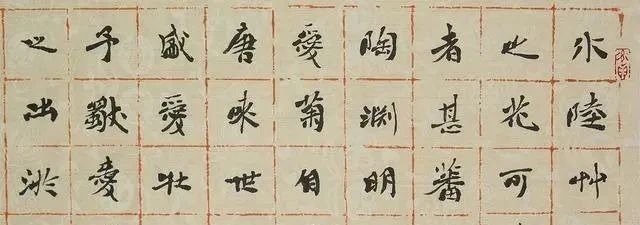 水陸艸
之花可
者甚蕃
陶渊明
愛菊自
唐來世
盛愛牡
予獨愛
之出淤